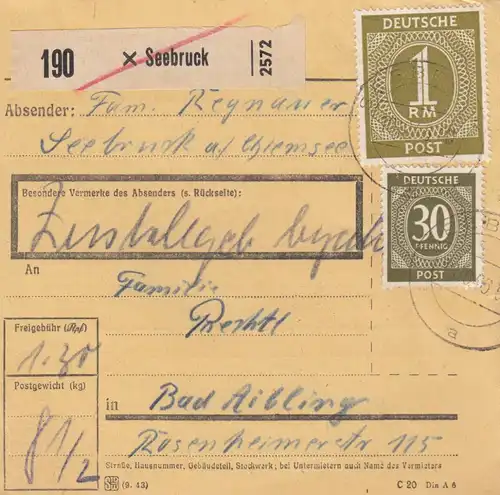 190 × Seebruck 2572
DEUTSCHE
1
RM
POST
Absender: Fam. Regnauer
Seebruck a/Chiemsee
DEUTSCHE
30
PFENNIG
POST
Besondere Vermerke des Absenders (s. Rückseite):
Zustellgeb
An
Familie
Rechtl
Freigebühr (Rpf)
1.30
Postgewicht (kg)
8 1/2
in Bad Aibling
Rosenheimerstr 115
Straße, Hausnummer, Gebäudeteil, Stockwerk; bei Untermietern auch Name des Vermieters
(9. 43)
C 20 Din A 6
a